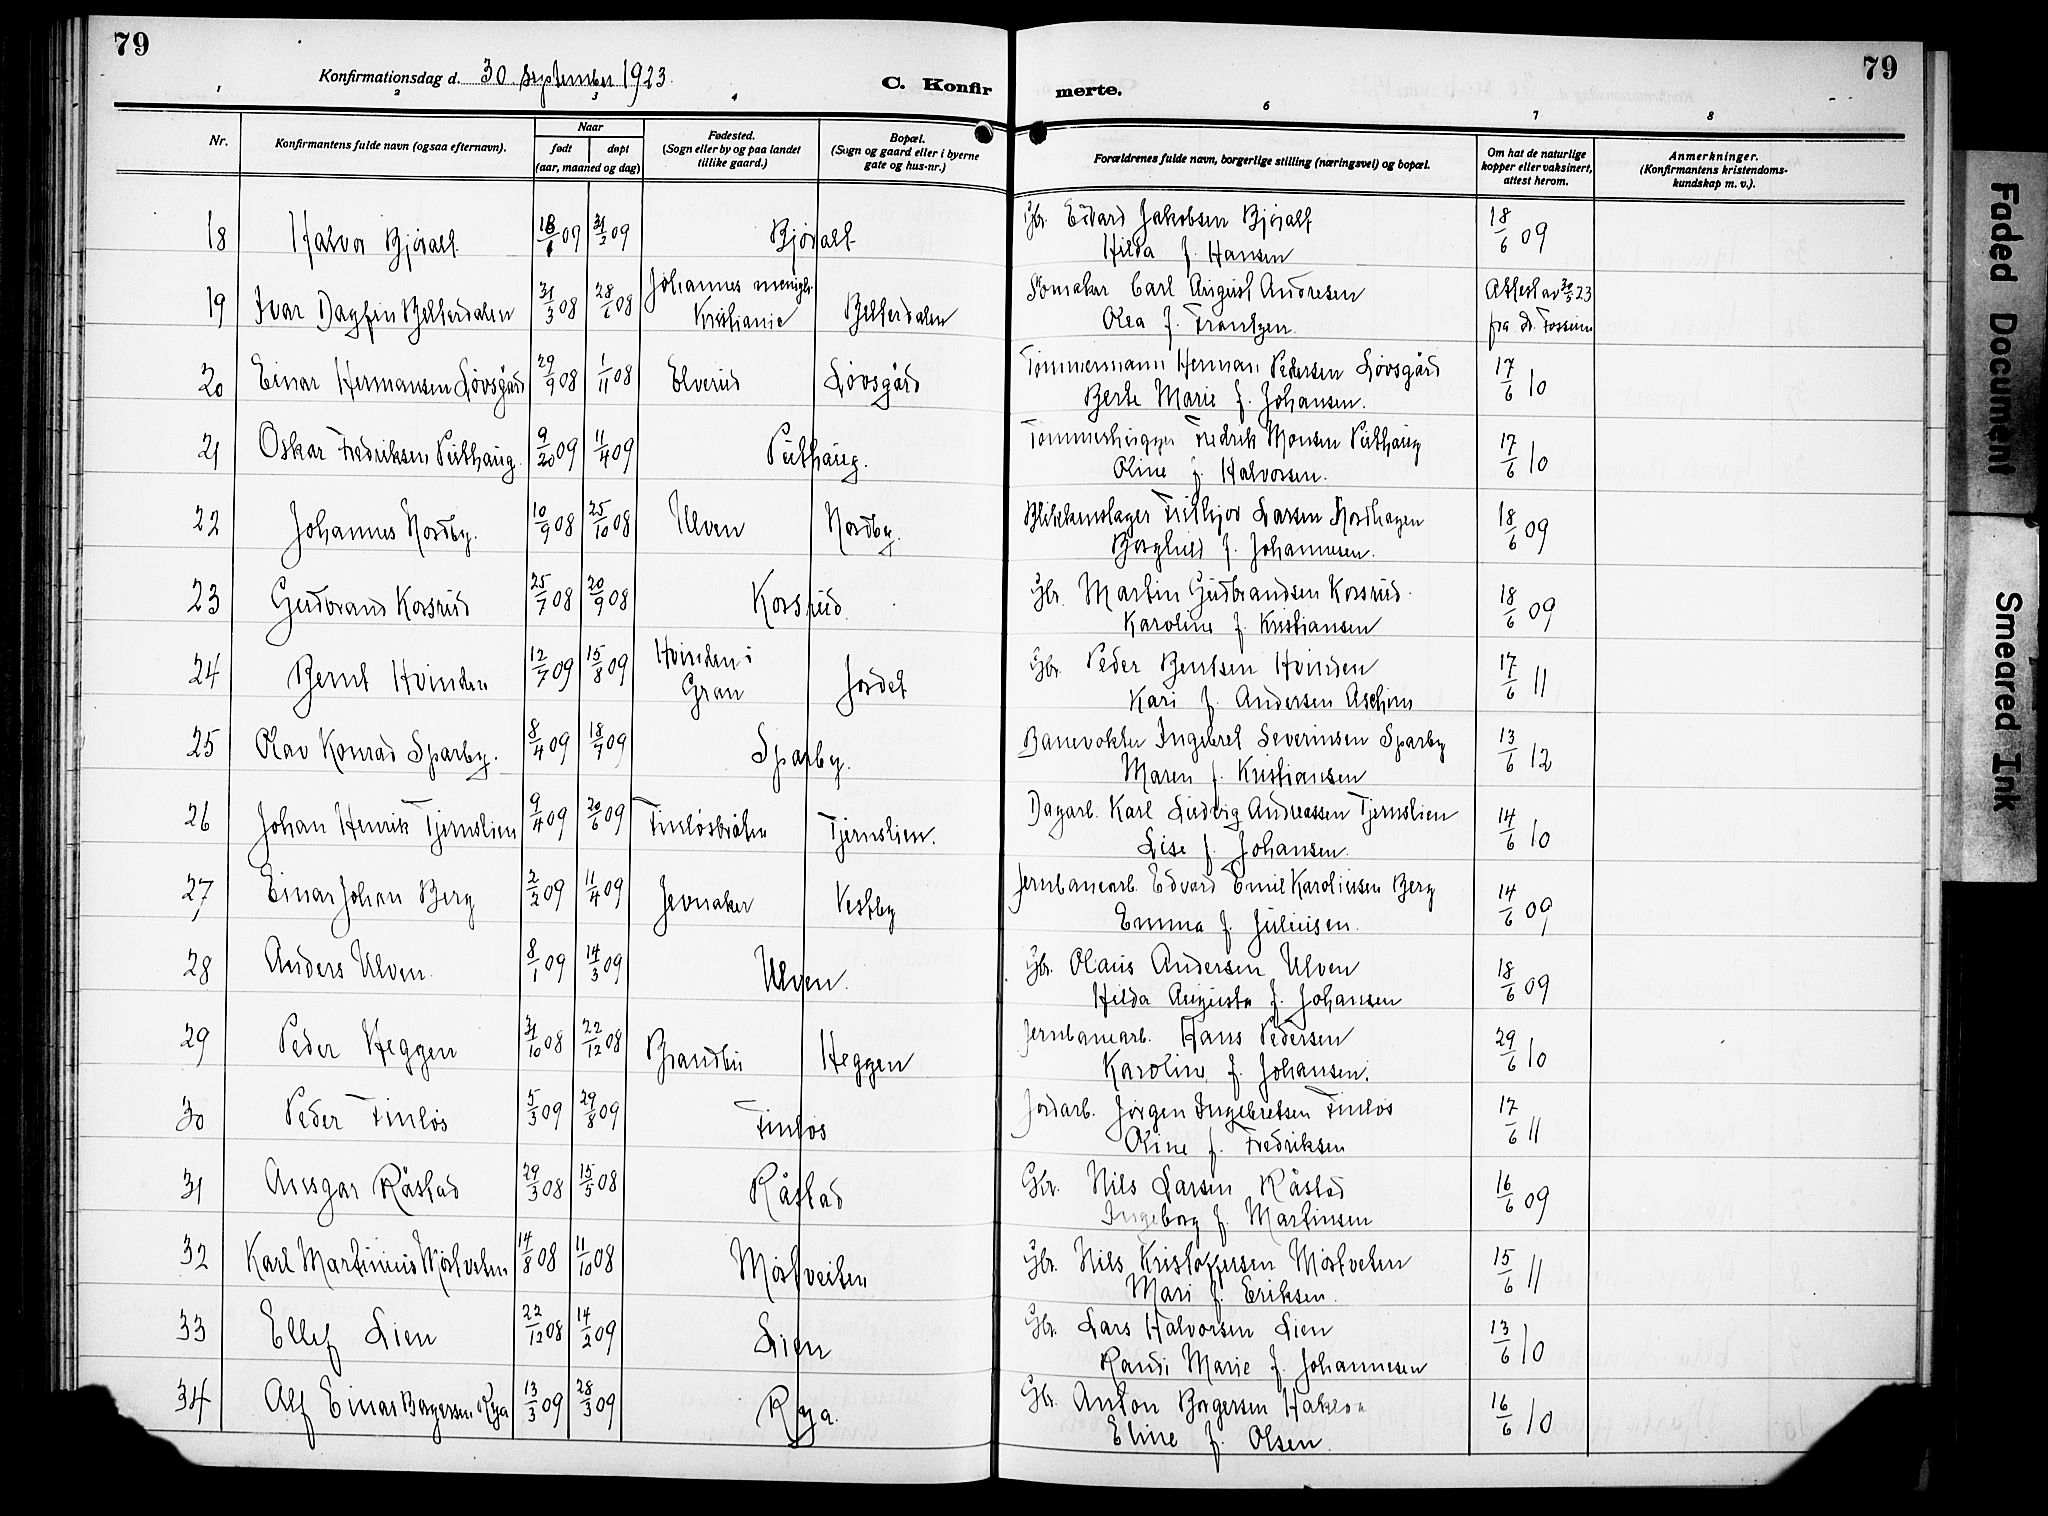 79
79
Konfirmationsdag d. 30 september 1923.
C. Konfir merte.
1 2 3 4 6 7 8
Nr.
Konfirmantens fulde navn (ogsaa efternavn).
Naar
født døpt
(aar, maaned og dag)
Fødested.
(Sogn eller by og paa landet
tillike gaard.)
Bopæl.
(Sogn og gaard eller i byerne
gate og hus-nr.)
Forældrenes fulde navn, borgerlige stilling (næringsvei) og bopæl.
Om hat de naturlige
kopper eller vaksinert,
attest herom.
Anmerkninger.
(Konfirmantens kristendoms-
kundskap m. v.).
18 Halvor Bjøralt 09 09 Bjøralt Gbr. Edvard Jakobsen Bjøralt 18/6 09
Hilda f. Hansen
19 Ivar Dagfin Belterdalen 31/3 08 28/6 08 Johannes menigh. Kristiania Belterdalen Skomaker Carl August Andresen Attest av 23
Olea f. Frantzen. fra dr. Fossum
20 Einar Hermansen Løvsgård 29/9 08 1/11 08 Elverud Løvsgård Tømmermann Herman Pedersen Løvsgård 17/6 10
Berte Marie f. Johansen.
21 Oskar Fredriksen Puthaug 9/20 09 11/4 09 Puthaug. Tømmerhugger Fredrik Monsen Puthaug 17/6 10
Oline f. Halvorsen.
22 Johannes Nordby. 10/9 08 25/10 08 Ulven Nordby. Blikkenslager Frithjov Larsen Nordhagen 18/6 09
Borghild f. Johannesen.
23 Gudbrand Korsrud 25/7 08 20/9 08 Korsrud. Gbr. Martin Gudbrandsen Korsrud. 18/6 09
Karoline f. Kristiansen
24 Bernt Hvinden 12/7 09 15/8 09 Hvinden i Gran Jordet Gbr. Peder Bentsen Hvinden 17/6 11
Kari f. Andersen Aschim
25 Olav Konrad Sparby. 8/4 09 18/7 09 Sparby. Banevokter Ingebret Severinsen Sparby 13/6 12
Maren f. Kristiansen
26 Johan Henrik Tjernslien 9/4 09 20/6 09 Finløsbråten Tjernslien. Dagarb. Karl Ludvig Andreassen Tjernslien 14/6 10
Lise f. Johansen.
27 Einar Johan Berg 2/2 09 11/4 09 Jevnaker Vestby Jernbanearb. Edvard Emil Karoliussen Berg 14/6 09
Emma f. Juliusen.
28 Anders Ulven. 8/1 09 14/3 09 Ulven. Gbr. Olaus Andersen Ulven 18/6 09
Hilda Augusta f. Johansen
29 Peder Heggen 31/10 08 22/12 08 Brandbu Heggen Jernbanearb. Hans Pedersen 29/6 10
Karoline f. Johansen.
30 Peder Finløs 5/3 09 29/8 09 Finløs Jordarb. Jørgen Ingebretsen Finløs 17/6 11
Oline f. Fredriksen
31 Ansgar Råstad 29/3 08 15/5 08 Råstad Gbr. Nils Larsen Råstad 16/6 09
Ingeborg f. Martinsen
32 Karl Martinius Mostveten 14/8 08 11/10 08 Mostveiten Gbr. Nils Kristoffersen Mostveten 15/6 11
Mari f. Eriksen.
33 Ellef Lien 22/12 08 14/2 09 Lien Gbr. Lars Halvorsen Lien 13/6 10
Randi Marie f. Johannesen
34 Alf Einar Borgersen Rya 13/3 09 28/3 09 Rya. Gbr. Anton Borgersen 16/6 10
Eline f. Olsen.
Faded Document
Smeared Ink